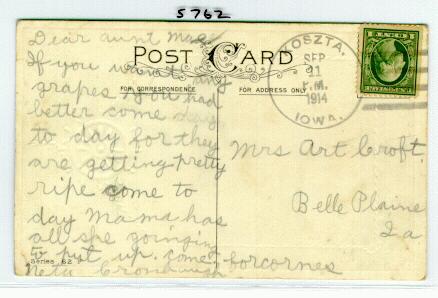 5762
Dear aunt Mrs
POST CARD
FOR CORRESPONDENCE
FOR ADDRESS ONLY
KOSZTA,
SEP
21
P.M.
1914
IOWA.
If you want any
grapes you had
better come day
to day for they
are getting pretty
ripe come to
day Mama has
all she
to put up. come
Series 62
Mrs Art Croft.
Belle Plaine
Ia